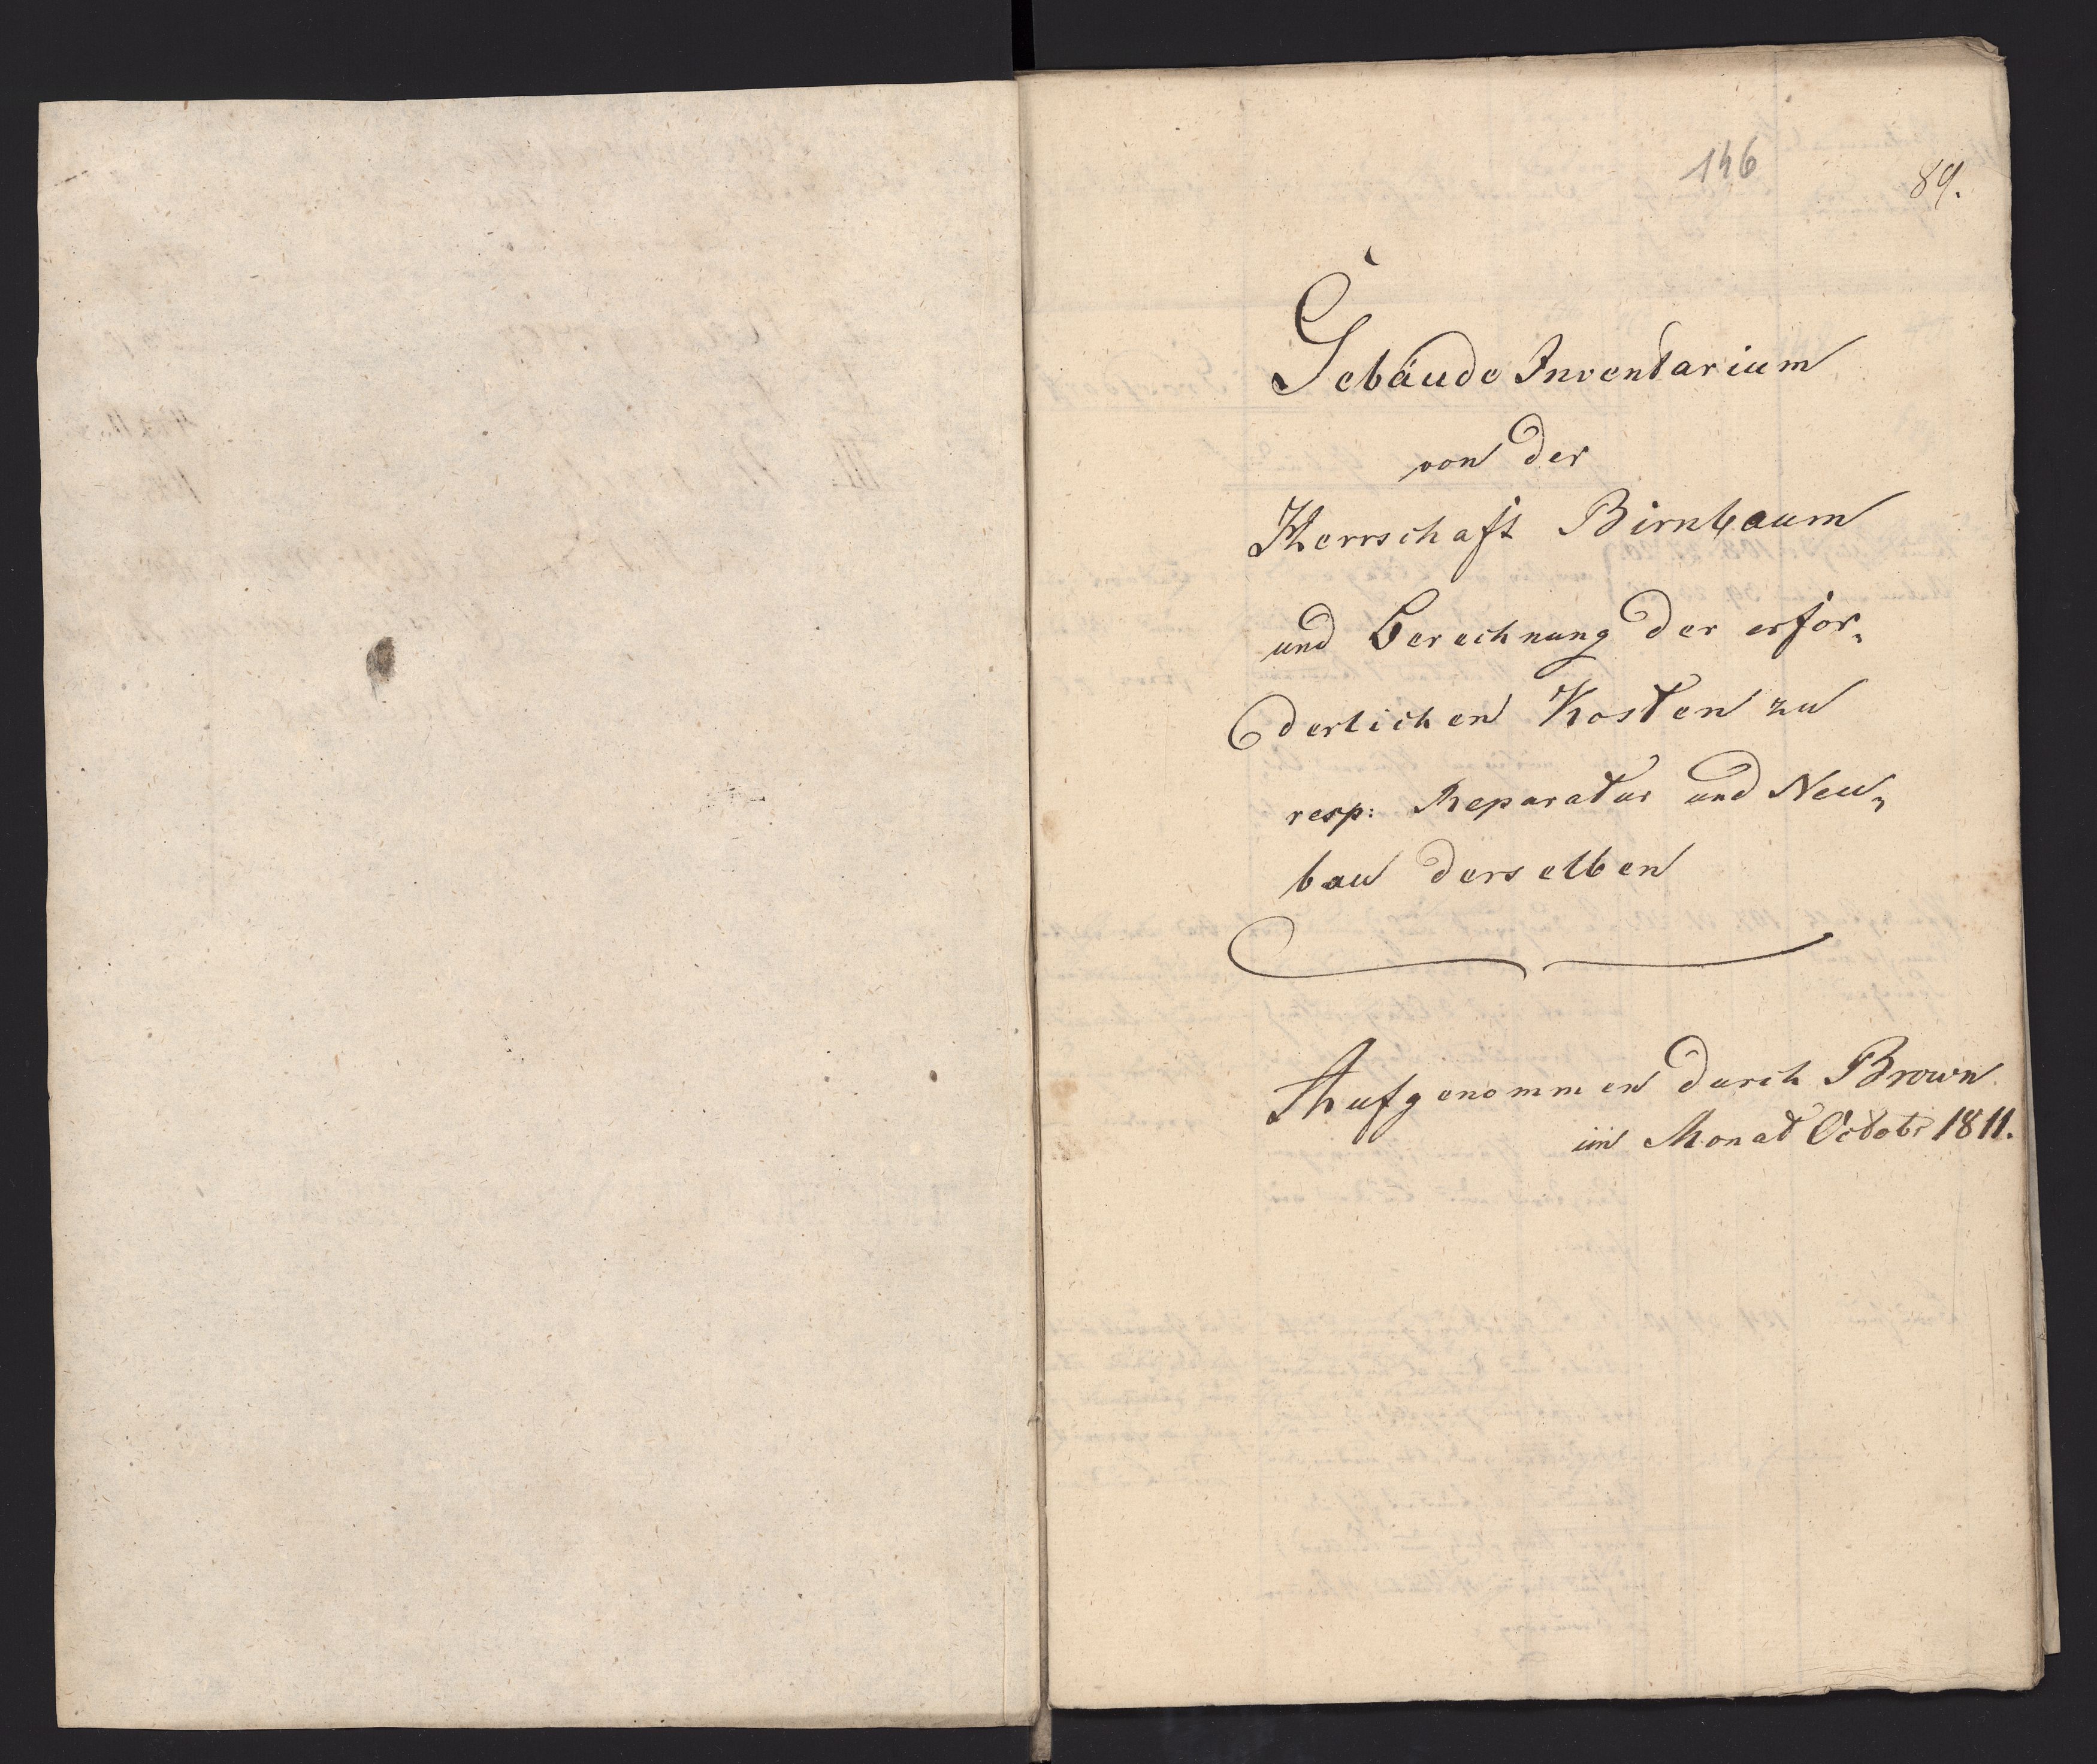 146
89.
Gebäude Inventarium
von der
Herrschaft Birnbaum
und Berechnung der erfor„
derlichen Kosten zu
resp: Reparatur und Neu„
bau derselben
Aufgenommen durch Brown
im Monat Octobr 1811.